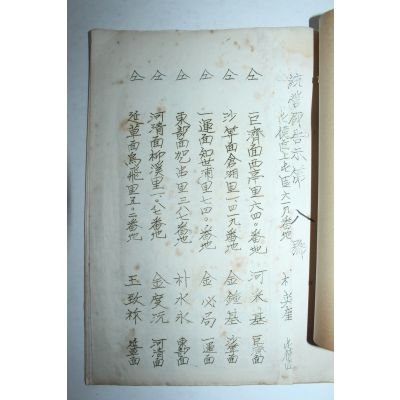 統營郡告示第八號
仝 巨濟面西亭里六四〇番地 河采基 巨濟面
仝 沙等面倉湖里一四一九番地 金鍾基 沙等面
仝 一運面知世浦里七四〇番地 金必局 一運面
仝 東部面加背里三八七番地 朴水永 東部面
仝 河淸面柳溪里一〇七番地 金度沅 河淸面
仝 延草面烏飛里五〇二番地 玉致 延草面